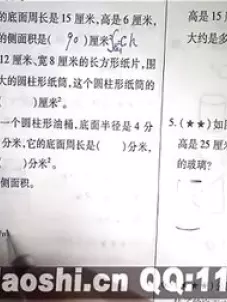 的底面周长是15厘米,高是6厘米,
的侧面积是( 90 )厘米²。S侧=Ch
12厘米、宽8厘米的长方形纸片,围
大的圆柱形纸筒,这个圆柱形纸筒的
( )厘米²。
一个圆柱形油桶,底面半径是4分
分米,它的底面周长是( )分米,
)分米²。
侧面积。
高是15厘
大约是多
5.(★★)如图
高是25厘米
的玻璃?
(★★)
laoshi.cn QQ:11